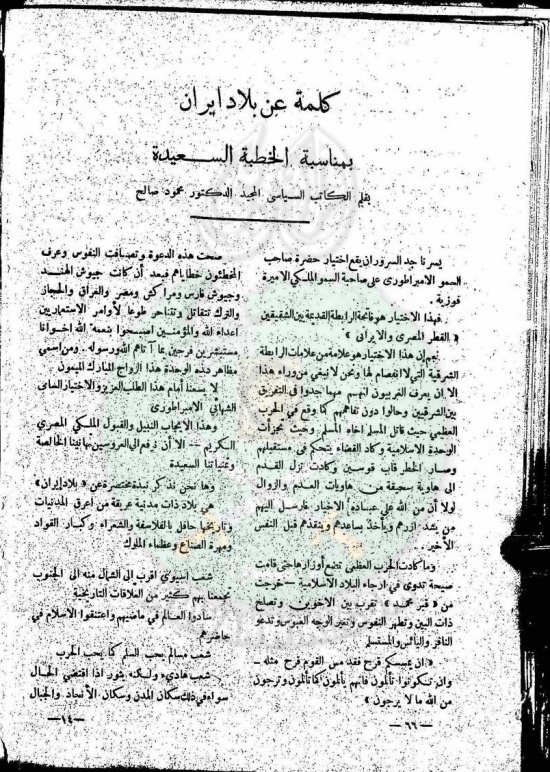 كلمة عن بلاد ايران
بمناسبة الخطبة السعيدة
بقلم الكاتب السياسى المجيد الدكتور محمود صالح
يسرنا جد السرور ان يقع اختيار حضرة صاحب
السمو الامبراطورى على صاحبة السمو الملكي الاميرة
فوزية .
فهذا الاختيار هو فاتحة الرابطة القديمة بين الشقيقين
« القطر المصرى والايرانى »
نعم إن هذا الاختيار هو علامة من علامات الرابطة
الشرقية التي لا انفصام لها ونحن لا نبغي من وراء هذا
الا ان يعرف الغربيون انهم مهما جدوا فى التفريق
بين الشرقيين وحالوا دون تفاهمهم كما وقع في الحرب
العظمى حيث قاتل المسلم اخاه المسلم وحيث تجزأت
الوحدة الاسلامية وكاد القضاء يتحكم فى مستقبلهم
وصار الخطر قاب قوسين وكادت تزل القدم
الى هاوية سحيقة من هاويات العدم والزوال
لولا أن من الله على عباده الاخيار فأرسل اليهم
من يشد ازرهم ويأخذ بساعدهم وينقذهم قبل النفس
الأخير .
وما كادت الحرب العظمى تضع أوزارها حتى قامت
صيحة تدوى فى ارجاء البلاد الاسلامية – خرجت
من « قبر محمد » تقرب بين الاخوين وتصلح
ذات البين وتطهر النفوس وتنير الوجه العبوس وتدعو
النافر واليائس والمستسلم
« إن يمسسكم قرح فقد مس القوم قرح مثله –
وان تكونوا تألمون فانهم يألمون كما تألمون وترجون
من الله ما لا يرجون »
– ٦٦ –
صحت هذه الدعوة وتصافت النفوس وعرف
المخطئون خطاياهم فبعد أن كانت جيوش الهند
وجيوش فارس ومراكش ومصر والعراق والحجاز
والترك تتقاتل وتتناحر طوعا لأوامر الاستعماريين
اعداء الله والمؤمنين اصبحوا بنعمة الله اخوانا
مستبشرين فرحين بما آتاهم الله ورسوله . ومن اسمى
مظاهر هذه الوحدة هذا الزواج المبارك الميمون
لا يسعنا أمام هذا الطلب العزيز والاختيار السامى
الشهانى الامبراطورى
وهذا الايجاب النبيل والقبول الملكي المصري
الكريم – الا أن نرفع الى العروسين تهانينا الخالصة
وتمنياتنا السعيدة
وها نحن نذكر نبذة مختصرة عن « بلاد إيران »
هي بلاد ذات مدنية عريقة من اعرق المدنيات
وتاريخها حافل بالفلاسفة والشعراء وكبار القواد
ومهرة الصناع وعظماء الملوك
شعب اسيوي اقرب الى الشمال منه الى الجنوب
تجمعنا بهم كثير من العلاقات التاريخية
سادوا العالم في ماضيهم واعتنقوا الاسلام في
حاضرهم
شعب مسالم يحب السلم كما يحب الحرب
شعب هادىء ولكنه يثور اذا اقتضي الحال
سواء في ذلك سكان المدن وسكان الأنجاد والجبال
– ١٤ –